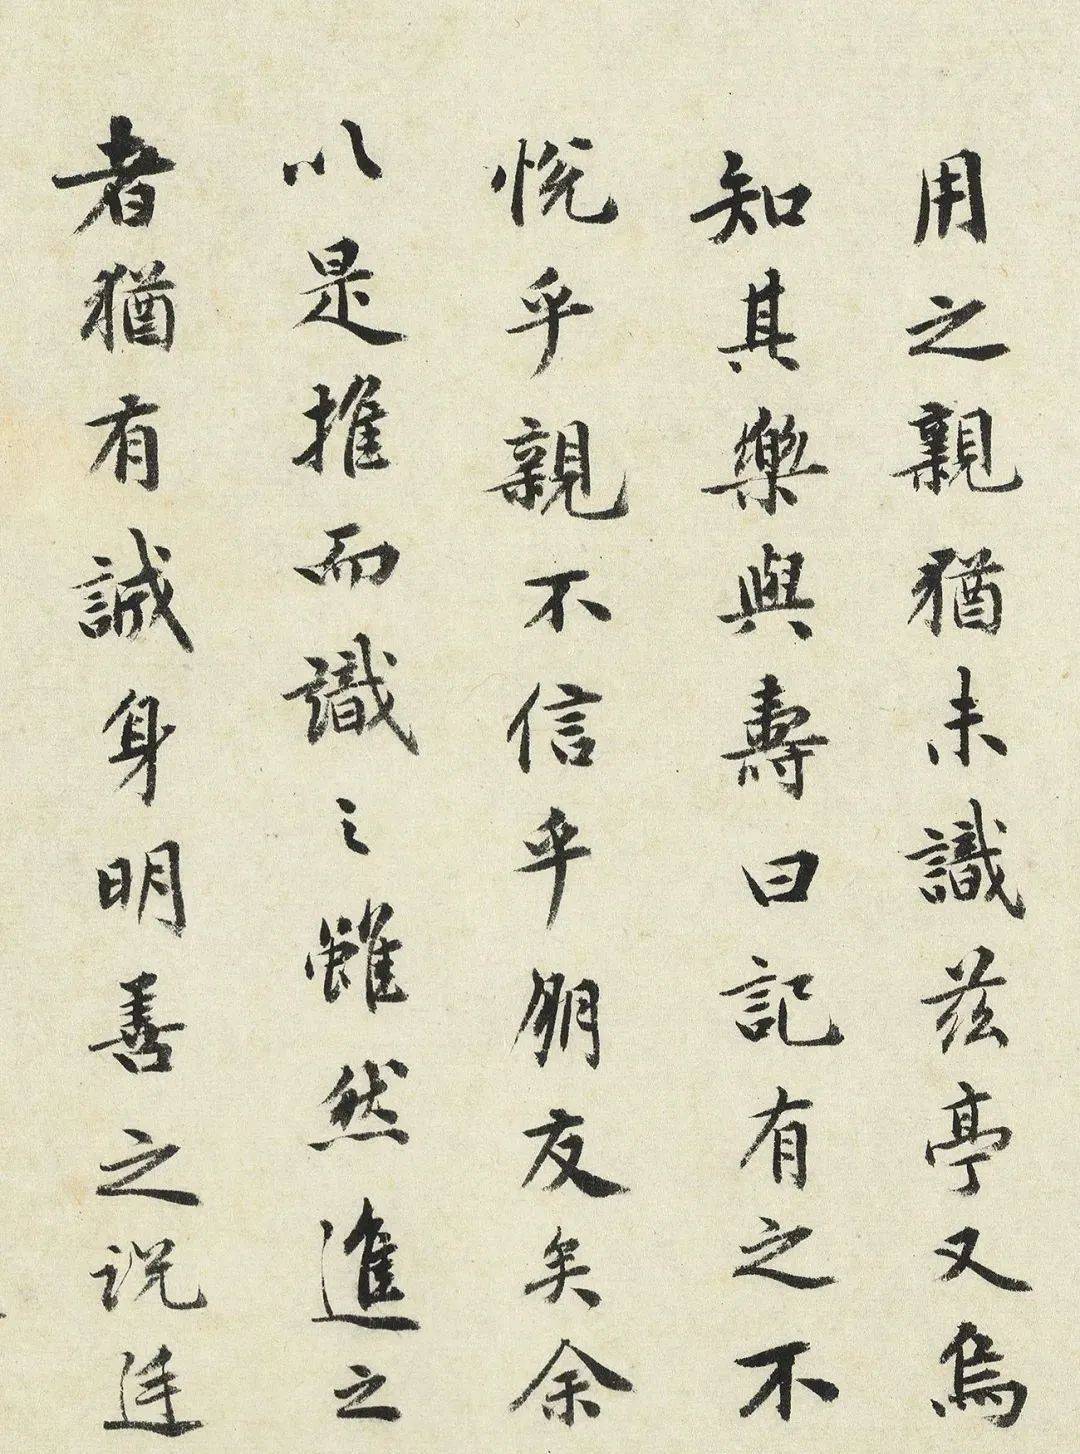 用之親猶未識茲亭又烏
知其樂與壽曰記有之不
悅乎親不信乎朋友矣余
以是推而識之雖然進之
者猶有誠身明善之說廷